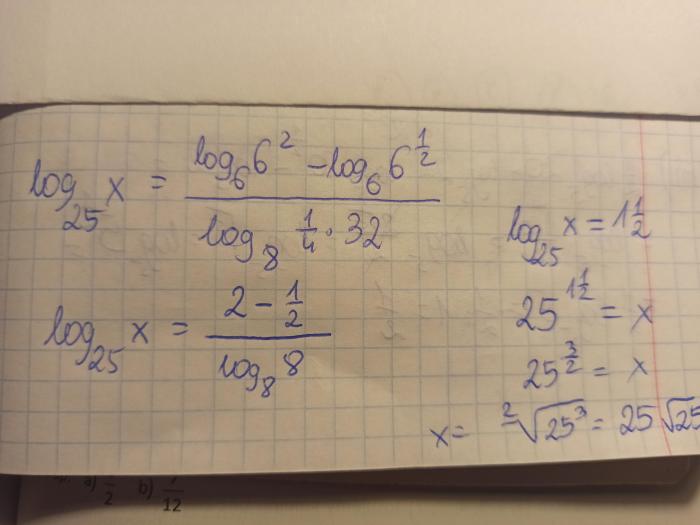 log₂₅ x = (log₆ 6² − log₆ 6^(1/2)) / (log₈ 1/4 · 32)
log₂₅ x = (2 − 1/2) / (log₈ 8)
log₂₅ x = 1 1/2
25^(1 1/2) = x
25^(3/2) = x
x = ²√(25³) = 25√25
a) 1/2 b) 7/12